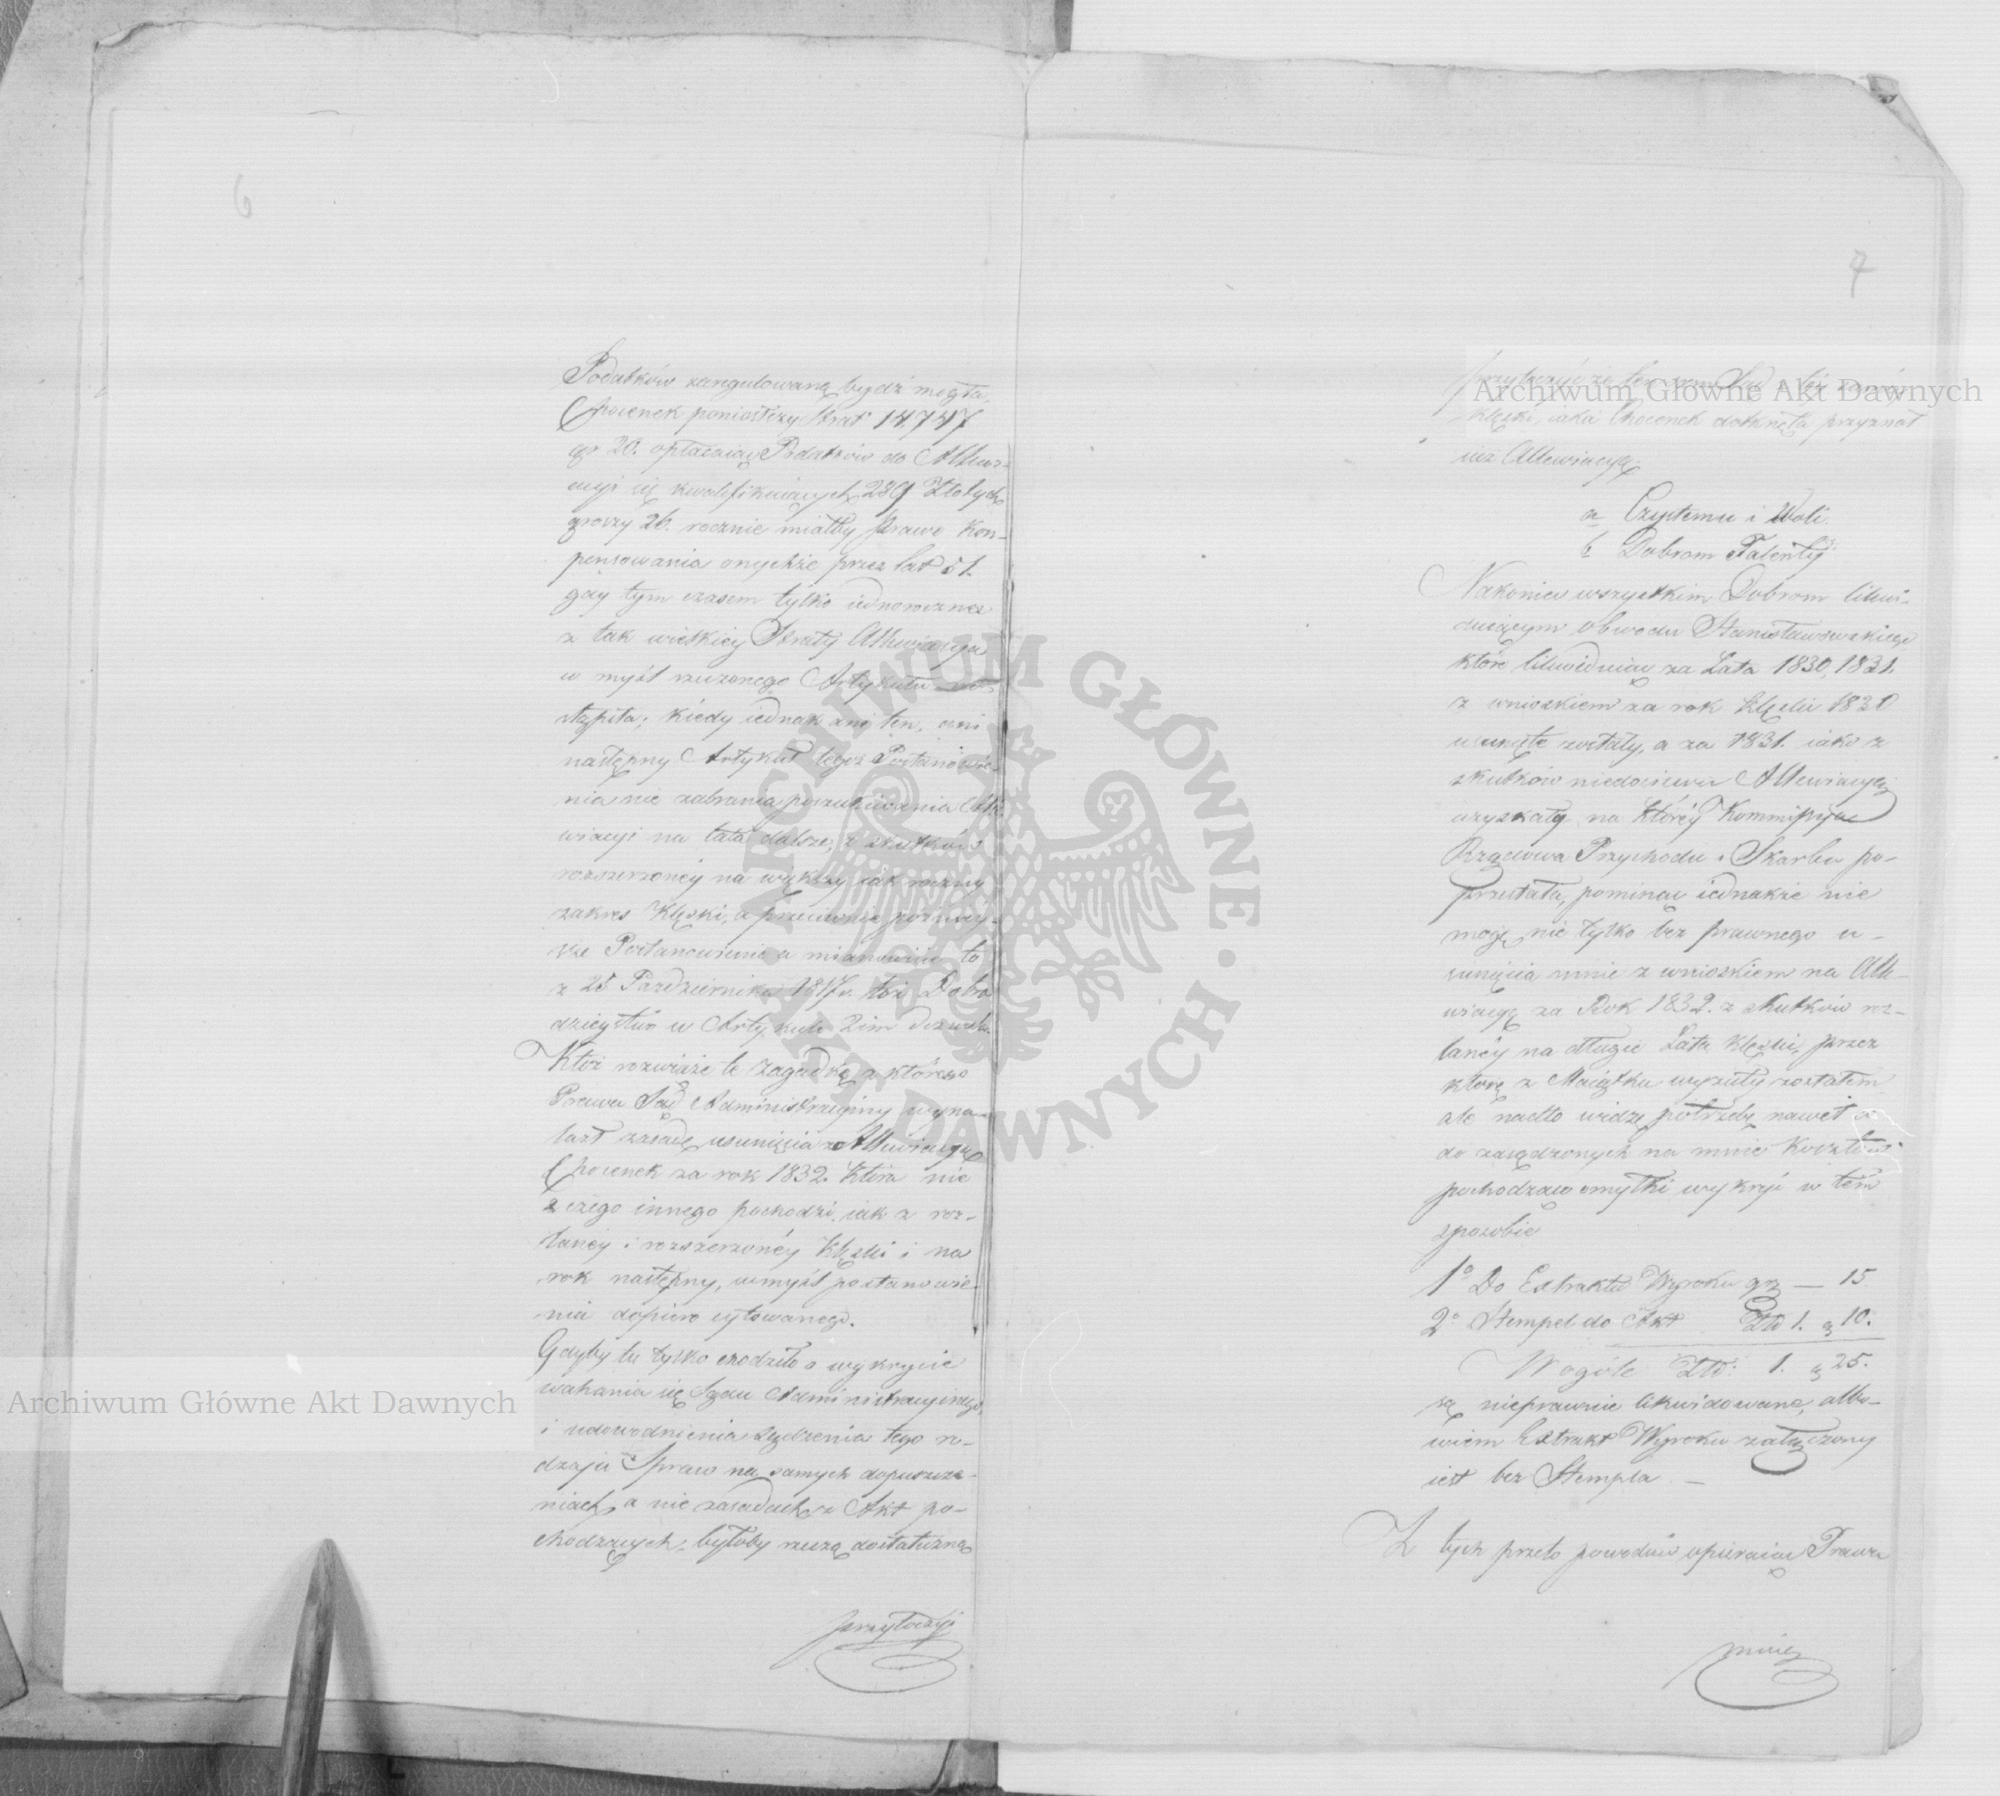 6
Podatków zaregulowaną bydź mogła,
Chocenek poniosłszy Strat 14747
gr 20. opłacaiąc Podatków do Allewia-
cyi się kwalifikuiących 289 Złotych
groszy 26. rocznie miałby Prawo kon-
pensowania onychże przez lat 51.
gdy tym czasem tylko iednoroczna
z tak wielkiey Straty Allewiacya
w myśl rzeczonego Artykułu na-
stąpiła; kiedy iednak ani ten, ani
następny Artykuł tegoż Postanowie-
nia nie zabrania poszukiwania Alle-
wiacyi na lata dalsze, z skutków
rozszerzoney na większy iak roczny
zakres Klęski, a przeciwnie
Postanowienie a mianowicie to
z 25 Października 1817 r. toż Dobro
dzieystwo w Artykule 2im dozwala
Któż rozwiąże tę zagadkę z którego
Prawa Sąd Administracyiny wyna-
lazł zasadę usunięcia z Allewiacyi
Chocenek za rok 1832. Która nie
z czego innego pochodzi, iak z roz-
laney i rozszerzoney Klęski i na
rok następny, w myśl postanowie-
nia dopiero cytowanego.
Gdyby tu tylko chodziło o wykrycie
wahania się Sądu Administracyinego,
i udowodnienia sądzenia tego ro-
dzaju Spraw na samych dopuszcze-
niach, a nie zasadach z Akt po-
chodzących, byłoby rzeczą dostateczną
przytoczyć
7
przytoczyć że ten sam Sąd z tey samey
Klęski, iaka Chocenek dotknęła przyznał
iuż Allewiacyą.
a Czystemu i Woli.
b Dobrom Talenty
Nakoniec wszystkim Dobrom likwi-
duiącym obwodu Stanisławowskiego
które likwiduiąc za Lata 1830, 1831.
z wnioskiem za rok Klęski 1830
usunięte zostały, a za 1831. iako z
skutków niedosiewu Allewiacyą
uzyskały na którey Kommissya
Rządowa Przychodu i Skarbu po-
przestała, pominąć iednakże nie
mogę nie tylko bez prawnego u-
sunięcia mnie z wnioskiem na Alle-
wiacyą za Rok 1832. z skutków roz-
laney na długie Lata Klęski, przez
którą z Maiątku wyzuty zostałem
ale nadto widzę potrzebę nawet co
do zasądzonych na mnie kosztów
pochodzące omyłki wykryć w tem
sposobie
1° Do Extraktu Wyroku gr — 15
2° Stempel do Akt Złp 1. g 10.
W ogóle Złp: 1. g 25.
są nieprawnie likwidowane, albo-
wiem Extrakt Wyroku załączony
iest bez Stempla. —
Z tych przeto powodów opieraiąc Prawa
mniey
Archiwum Główne Akt Dawnych
Archiwum Główne Akt Dawnych
ARCHIWUM GŁÓWNE · AKT DAWNYCH ·